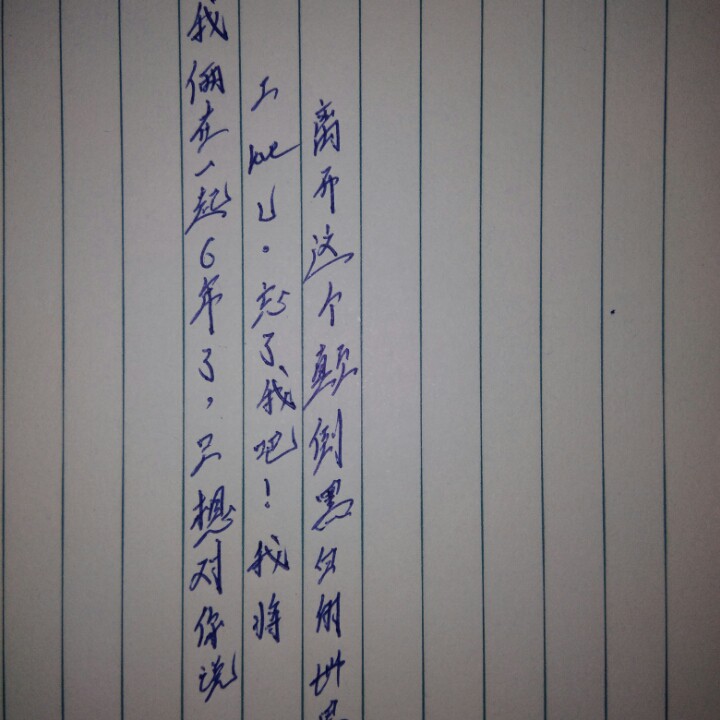 我俩在一起6年了,只想对你说
I love U。忘了我吧!我将
离开这个颠倒黑白的世界